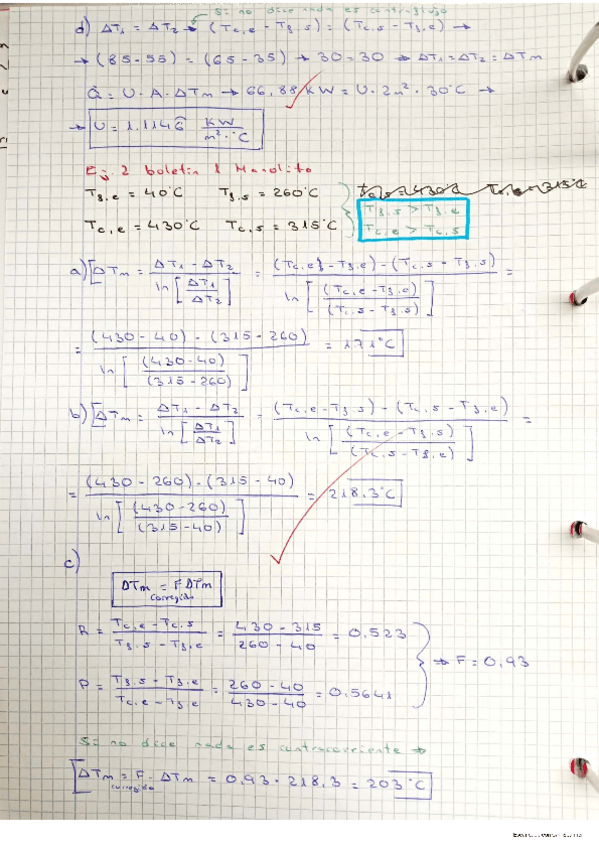 Si no dice nada es contraflujo
d) ΔT1 = ΔT2 → (Tc,e - Tf,s) = (Tc,s - Tf,e) →
→ (85-55) = (65-35) → 30 = 30 → ΔT1 = ΔT2 = ΔTm
Q̇ = U·A·ΔTm → 66,88 KW = U·2m²·30°C →
→ U = 1.1146 KW/m²·°C
Ej. 2 boletin 1 Manolito
Tf,e = 40°C Tf,s = 260°C Tc,s = 430°C Tc,e = 315°C
Tc,e = 430°C Tc,s = 315°C
Tf,s > Tf,e
Tc,e > Tc,s
a) ΔTm = (ΔT1 - ΔT2) / ln[ΔT1/ΔT2] = ((Tc,e - Tf,e) - (Tc,s - Tf,s)) / ln[(Tc,e - Tf,e)/(Tc,s - Tf,s)] =
= ((430-40) - (315-260)) / ln[(430-40)/(315-260)] = 171°C
b) ΔTm = (ΔT1 - ΔT2) / ln[ΔT1/ΔT2] = ((Tc,e - Tf,s) - (Tc,s - Tf,e)) / ln[(Tc,e - Tf,s)/(Tc,s - Tf,e)] =
= ((430-260) - (315-40)) / ln[(430-260)/(315-40)] = 218.3°C
c)
ΔTm corregido = F ΔTm
R = (Tc,e - Tc,s)/(Tf,s - Tf,e) = (430-315)/(260-40) = 0.523
→ F = 0,93
P = (Tf,s - Tf,e)/(Tc,e - Tf,e) = (260-40)/(430-40) = 0.5641
Si no dice nada es contracorriente →
ΔTm corregido = F · ΔTm = 0,93 · 218,3 = 203°C